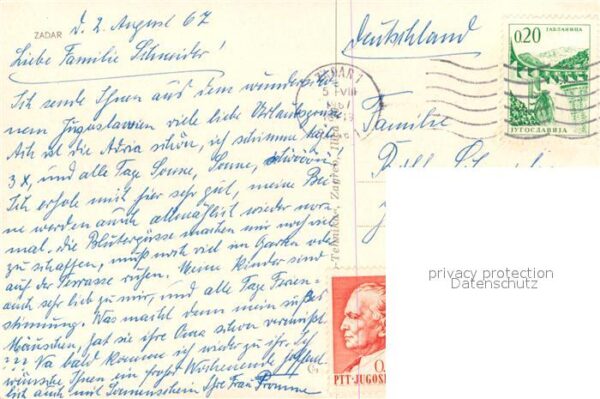 ZADAR
d. 2. August 67
Liebe Familie Schneider!
Ich sende Ihnen aus dem wunderschö
nem Jugoslawien viele liebe Urlaubsgrüsse
Ach ist die Adria schön, ich schwimme täglich
3 x, und alle Tage Sonne, Sonne, schööön
Ich erhole mich hier sehr gut, meine Bei
ne werden auch allmählich wieder nor-
mal. die Blutergüsse machen mir noch viel
zu schaffen, muß noch viel im Garten oder
auf der Terrasse ruhen. Meine Kinder sind
auch sehr lieb zu mir, und alle Tage Ferien-
stimmung. Was macht denn mein süßes
Mäuschen, hat sie ihre Oma schon vermißt
??? Na bald kommen ich wieder zu ihr. Ich
wünsche Ihnen ein frohes Wochenende
lich auch mit Sonnenschein Ihre Frau Promme
Deutschland
Familie
ZADAR 1
5 VIII
1967
Tehnika, Zagreb
0.20
ЈАБЛАНИЦА
ЈУГОСЛАВИЈА
PTT JUGOS
privacy protection
Datenschutz